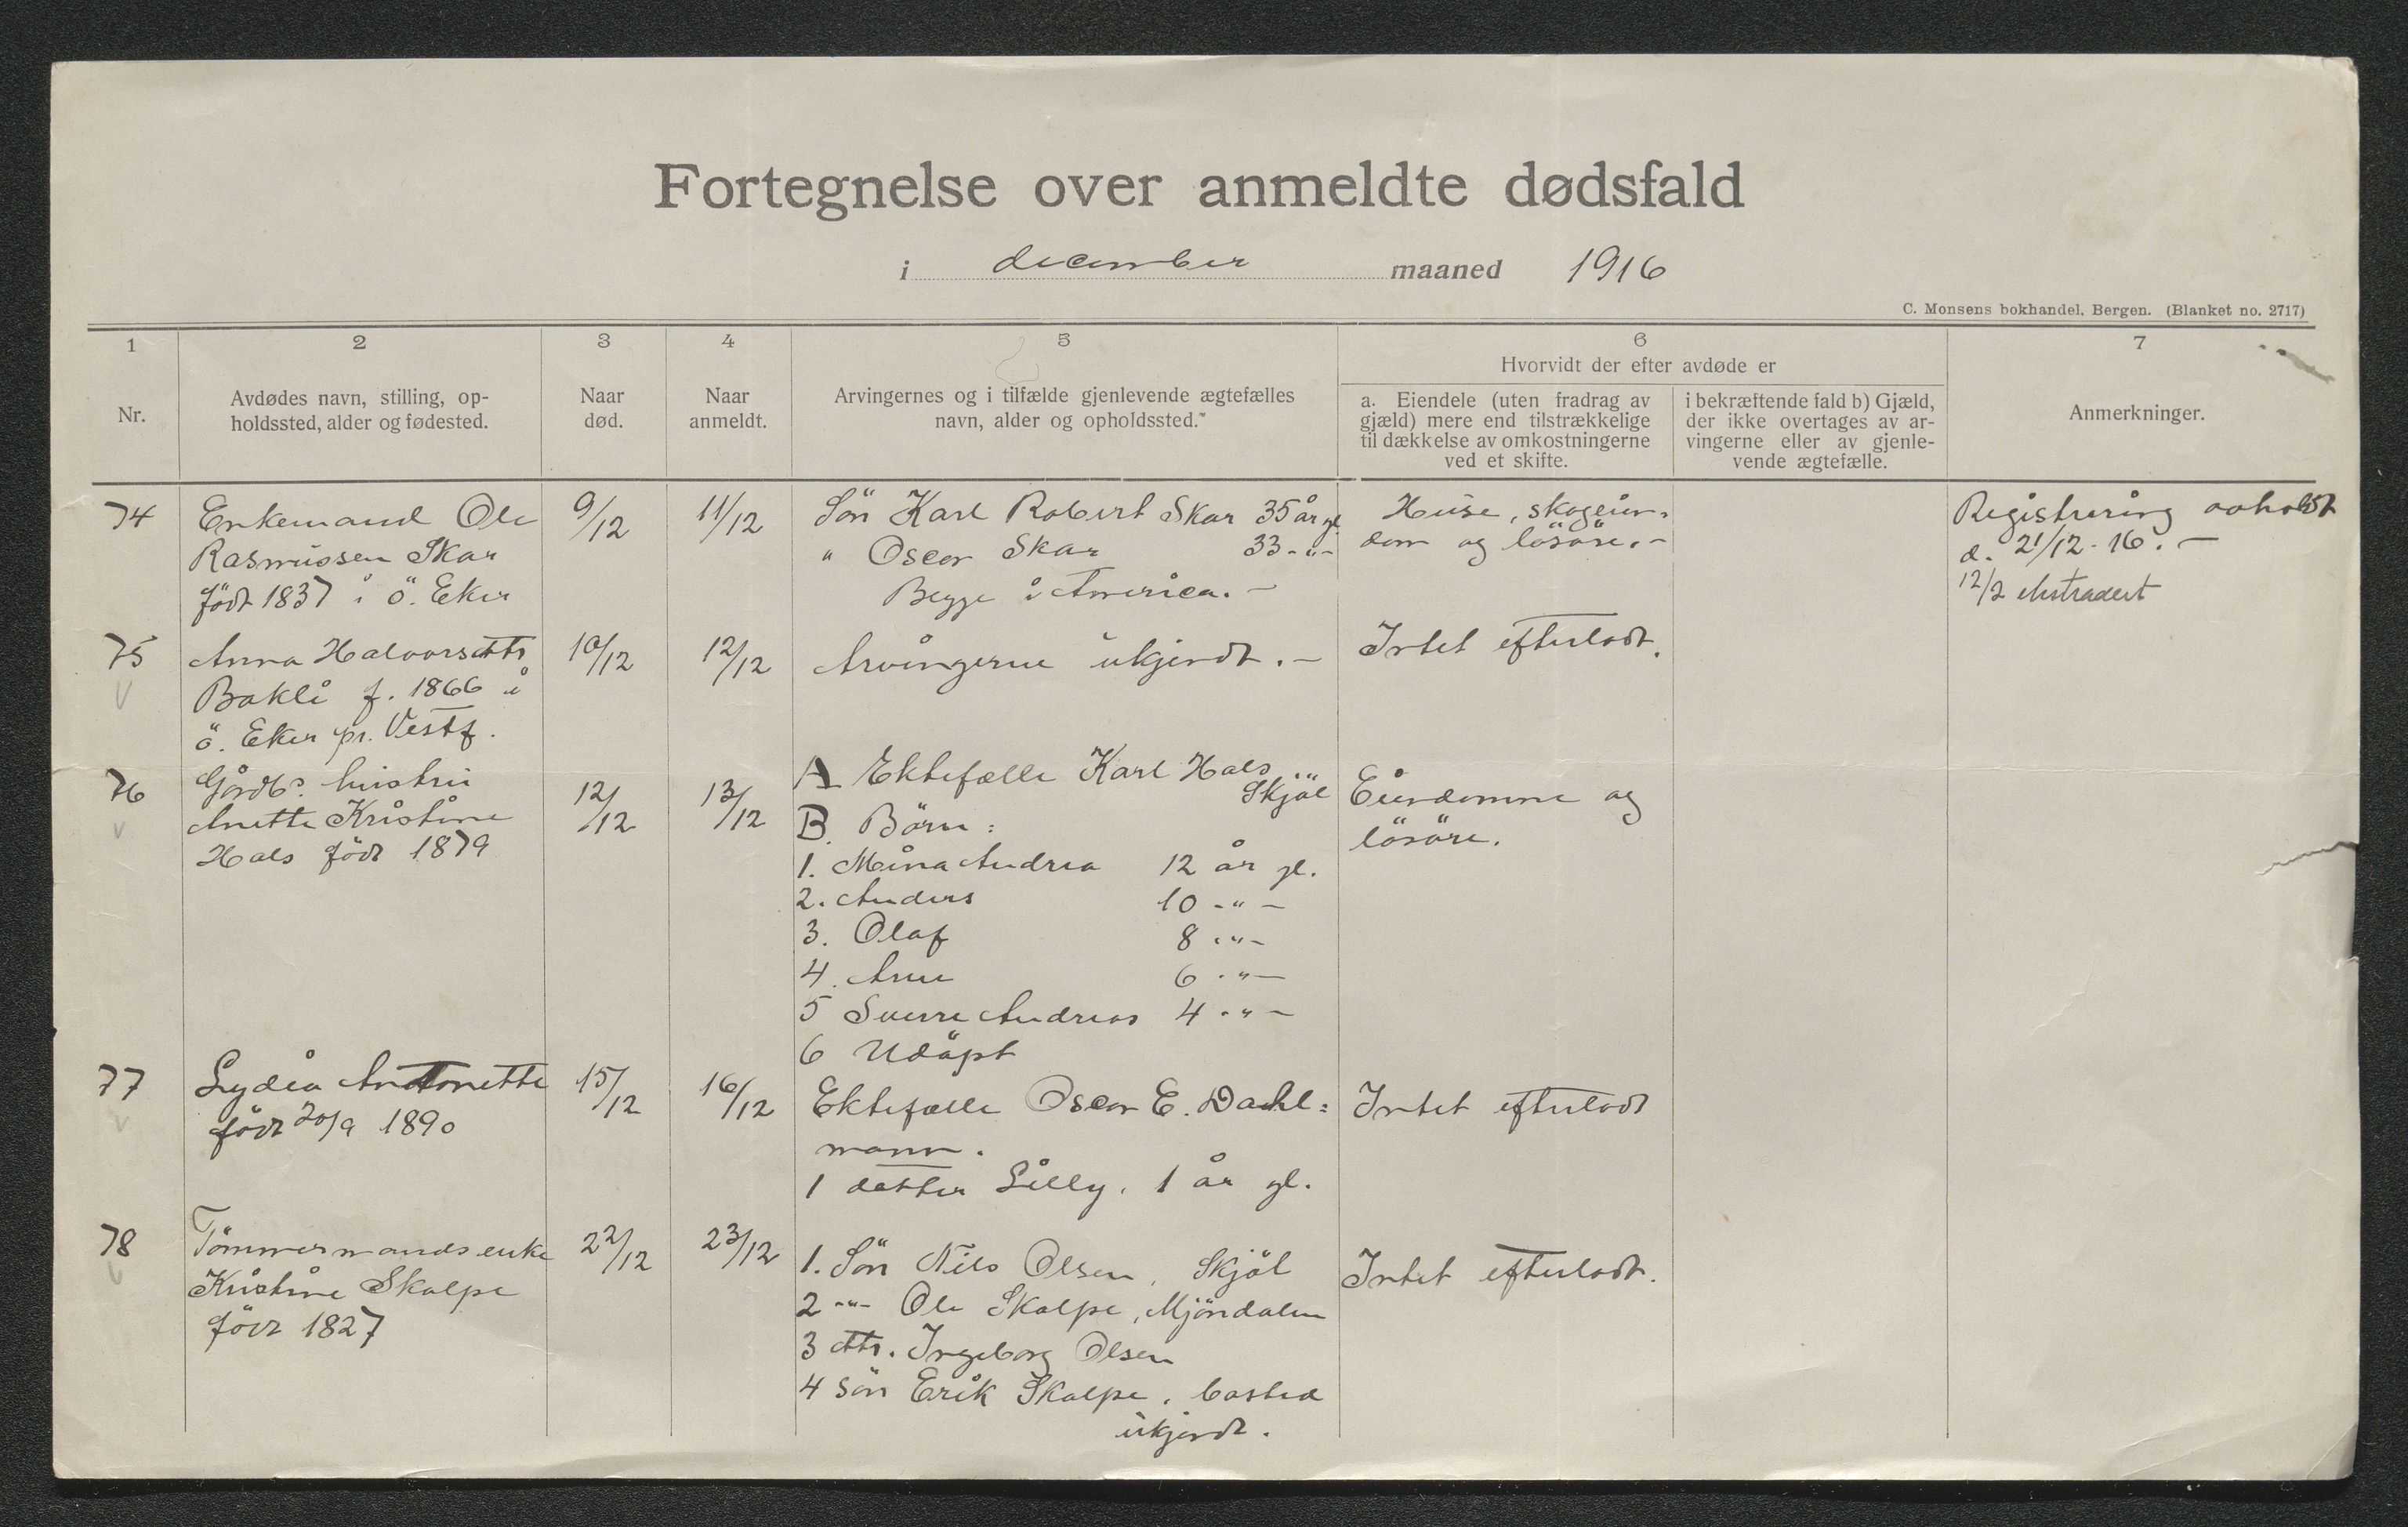 Fortegnelse over anmeldte dødsfald
i december maaned 1916
C. Monsens bokhandel, Bergen. (Blanket no. 2717)
1
Nr.
2
Avdødes navn, stilling, op-
holdssted, alder og fødested.
3
Naar
død.
4
Naar
anmeldt.
5
Arvingernes og i tilfælde gjenlevende ægtefælles
navn, alder og opholdssted.*
6
Hvorvidt der efter avdøde er
a. Eiendele (uten fradrag av
gjæld) mere end tilstrækkelige
til dækkelse av omkostningerne
ved et skifte.
i bekræftende fald b) Gjæld,
der ikke overtages av ar-
vingerne eller av gjenle-
vende ægtefælle.
7
Anmerkninger.
74
Enkemand Ole
Rasmussen Skar
född 1837 i ö. Eker
9/12
11/12
Sön Karl Robert Skar 35 år gl.
" Oscar Skar 33 -"-
Begge i America. -
Huse, skogeien-
dom og lösöre. -
Registrering avholdt
d. 21/12-16. -
12/2 ekstradert
75
Anna Halvorsdttr
Bakli f. 1866 i
ö. Eker pr. Vestf.
10/12
12/12
Arvingerne ukjendt. -
Intet efterladt.
76
Gårdbr. hustru
Anette Kristine
Hals född 1879
12/12
13/12
A Ektefælle Karl Hals
Skjöl
B. Börn:
1. Mina Andrea 12 år gl.
2. Anders 10 -"-
3. Olaf 8 -"-
4. Arne 6 -"-
5 Sverre Andreas 4 -"-
6 Udöpt
Eiendomme og
lösöre.
77
Lydia Antonette
född 20/9 1890
15/12
16/12
Ektefælle Oscar E. Dahl=
mann.
1 datter Lilly, 1 år gl.
Intet efterladt
78
Tömmermandsenke
Kristine Skalpe
född 1827
22/12
23/12
1. Sön Nils Olsen, Skjöl
2 -"- Ole Skalpe, Mjöndalen
3 dttr. Ingeborg Olsen
4 sön Erik Skalpe, bosted
ukjendt.
Intet efterladt.